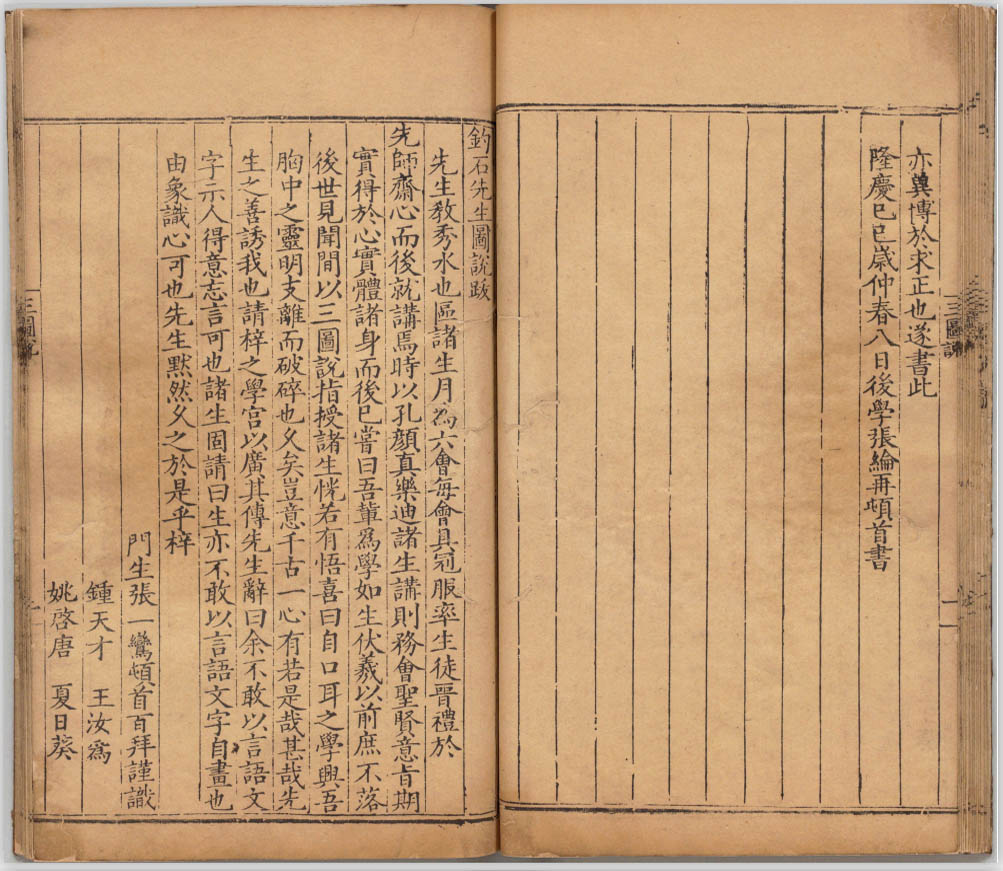 亦冀博於求正也遂書此
隆慶已巳歲仲春八日後學張綸再頓首書
三圖說
二
釣石先生圖說跋
先生教秀水也區諸生月爲六會每會具冠服率生徒晉禮於
先師齋心而後就講焉時以孔顔真樂迪諸生講則務會聖賢意旨期
實得於心實體諸身而後已嘗曰吾軰爲學如生伏羲以前庶不落
後世見聞間以三圖說指授諸生恍若有悟喜曰自口耳之學興吾
胸中之靈明支離而破碎也久矣豈意千古一心有若是哉甚哉先
生之善誘我也請梓之學宫以廣其傳先生辭曰余不敢以言語文
字示人得意忘言可也諸生固請曰生亦不敢以言語文字自畫也
由象識心可也先生黙然久之於是乎梓
門生張一鸞頓首百拜謹識
鍾天才 王汝爲
姚啓唐 夏日葵
三圖說